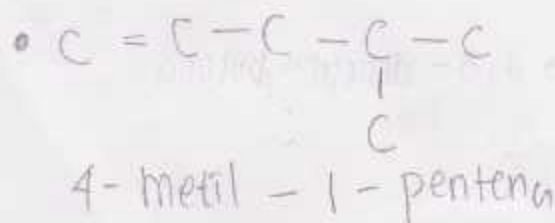 • C = C - C - C - C
|
C
4 - metil - 1 - pentena